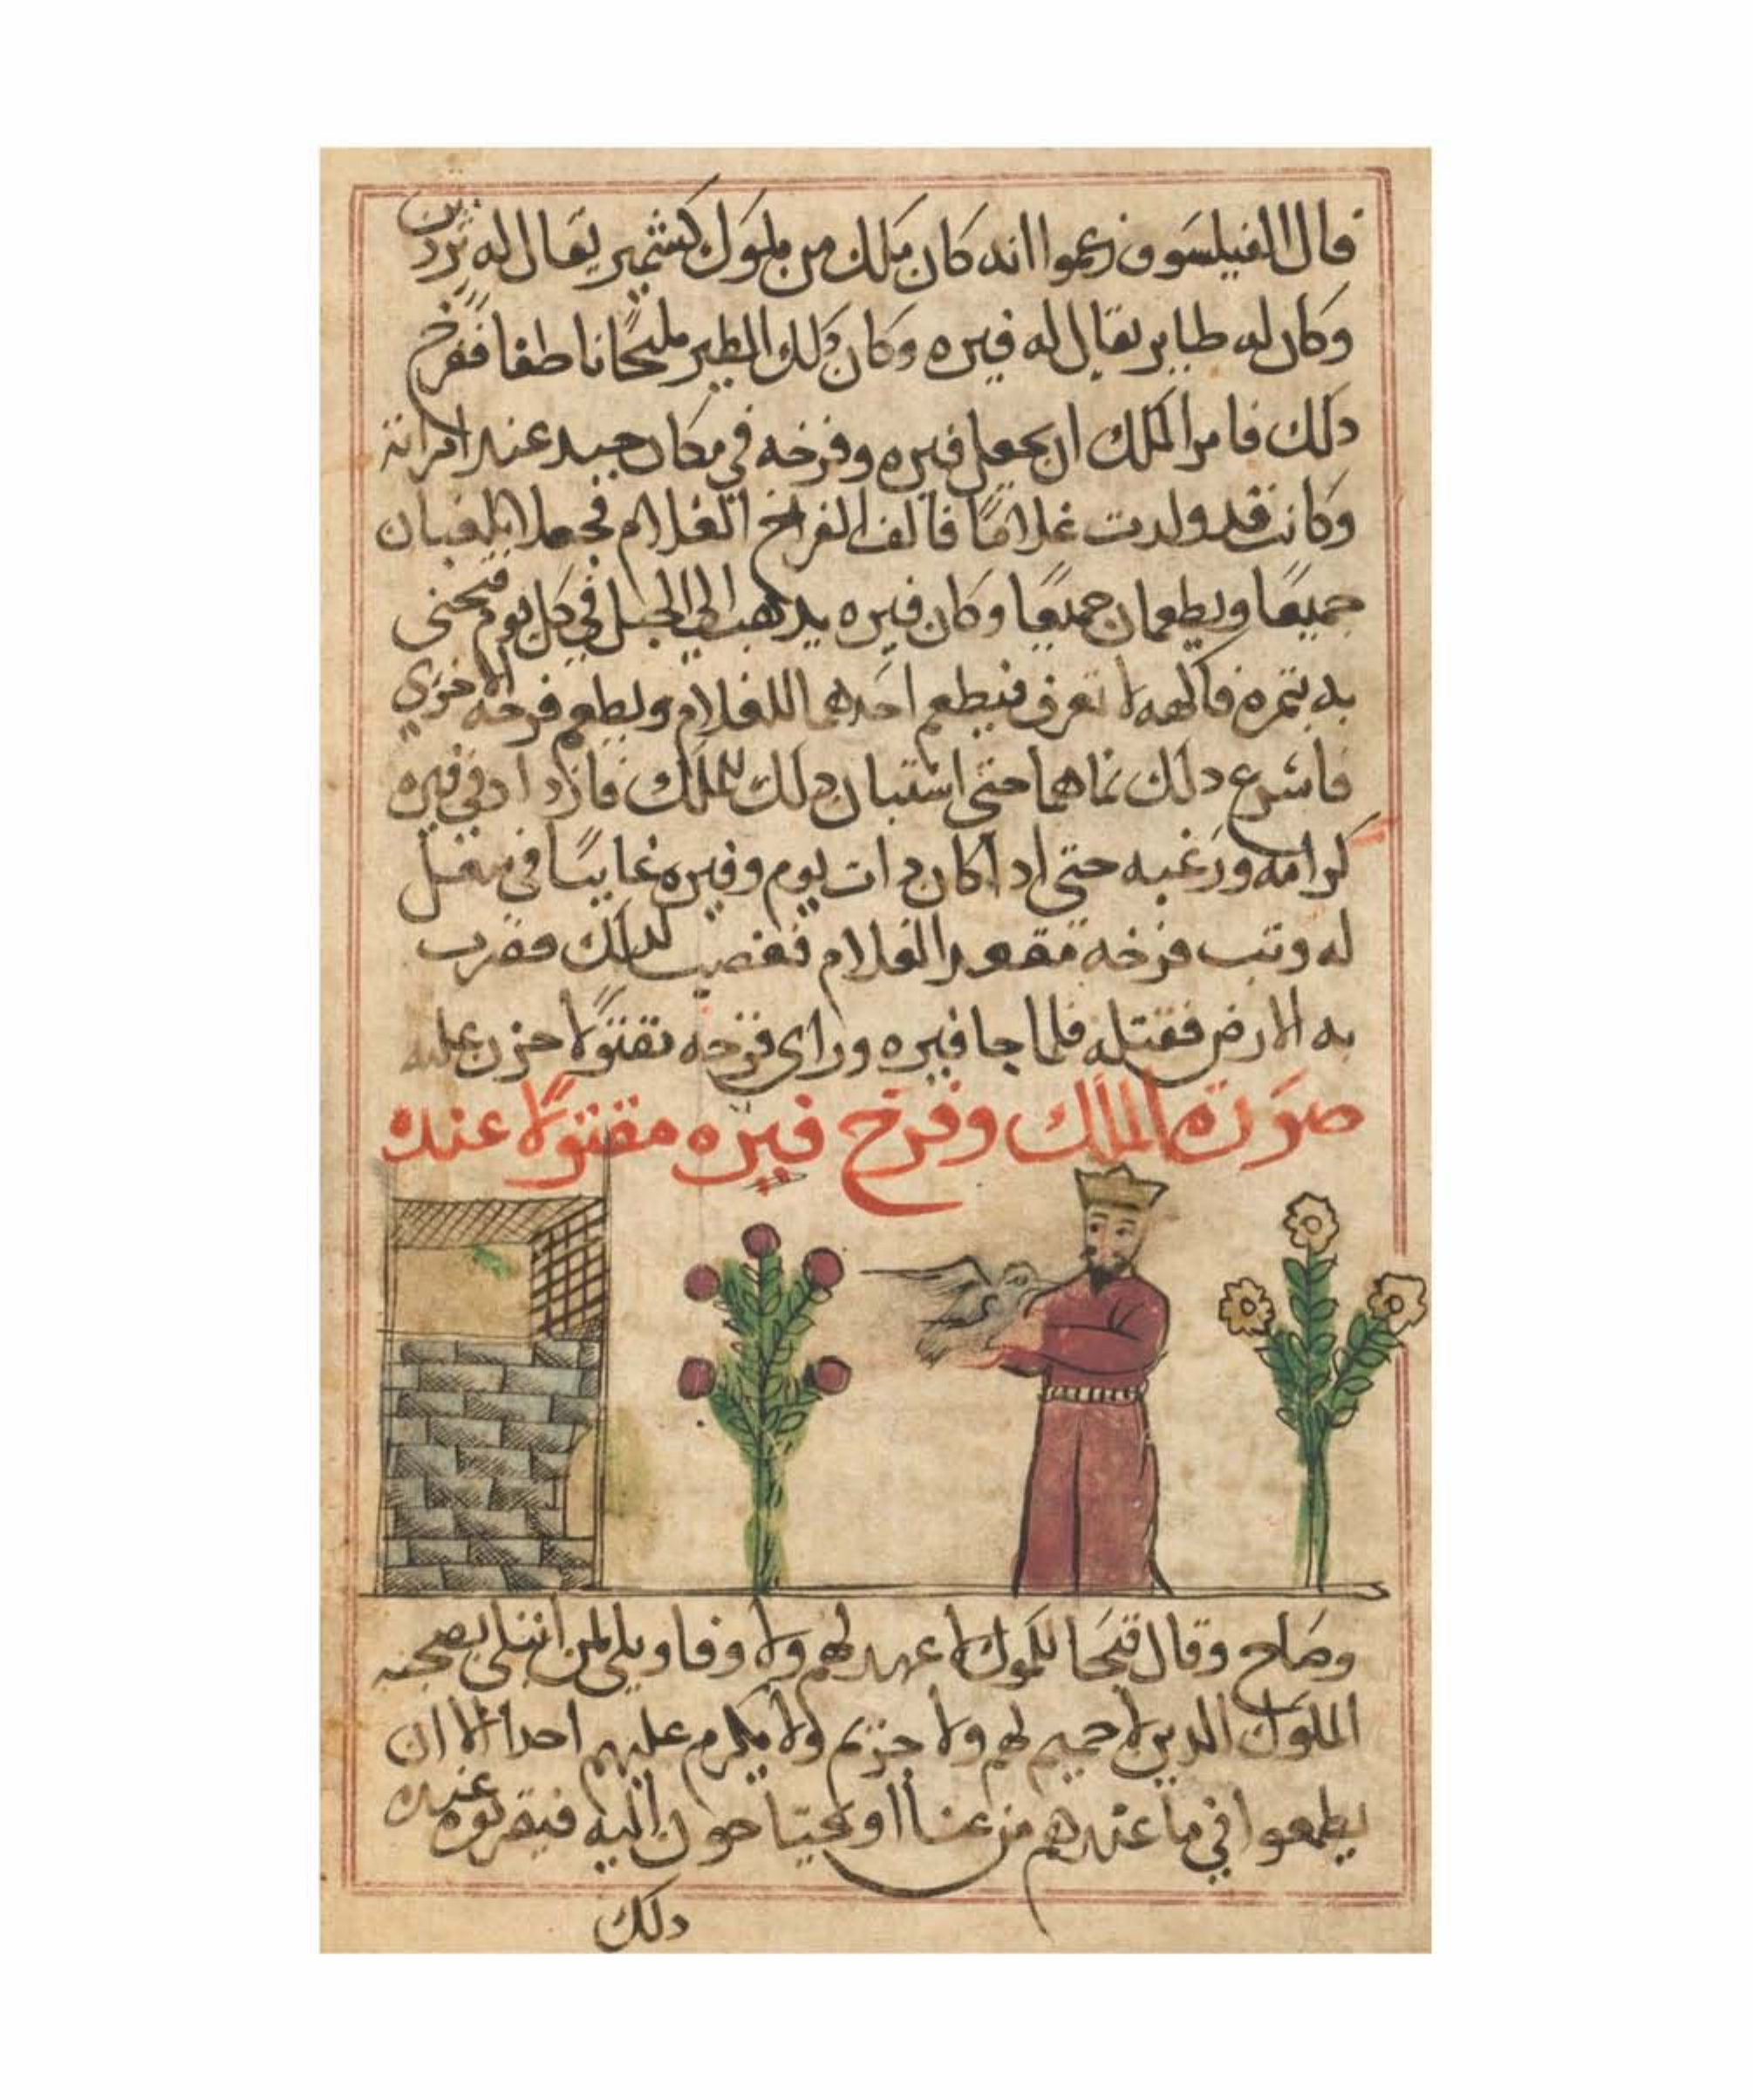 قال الفيلسوف زعموا انه كان ملك من ملوك كشمير يقال له
وكان له طاير يقال له فيره وكان ذلك الطير مليحا ناطقا ففرخ
دلك فامر الملك ان يجعل فيره وفرخه في مكان جيد عند امراته
وكانت قد ولدت غلامًا فالف الفراخ الغلام فجعلا يلعبان
جميعًا ويطعمان جميعًا وكان فيره يدهب الي الجبل في كل يوم
به بتمره فاكهه لا تعرف فيطعم احدهما للغلام ويطعم فرخه الاخري
فاسرع دلك نماهما حتى استبان دلك للملك فازداد في فيره
كرامه ورغبه حتى ادا كان دات يوم وفيره غايبًا في
له وتب فرخه الغلام فغضب لدلك فضرب
به الارض فقتله فلما جا فيره وراى فرخه مقتولًا حزن عليه
صورة الملك وفرخ فيره مقتولًا عنده
وصاح وقال قبحا للملوك لا عهد لهم ولا وفا ويلي لمن ابتلى بصحبه
الملوك الدين لا حميم لهم ولا حريم ولا يكرم عليهم احدا الا ان
يطمعوا في ما عندهم من غنا او يحتاجون اليه فيقربوه عنده
دلك